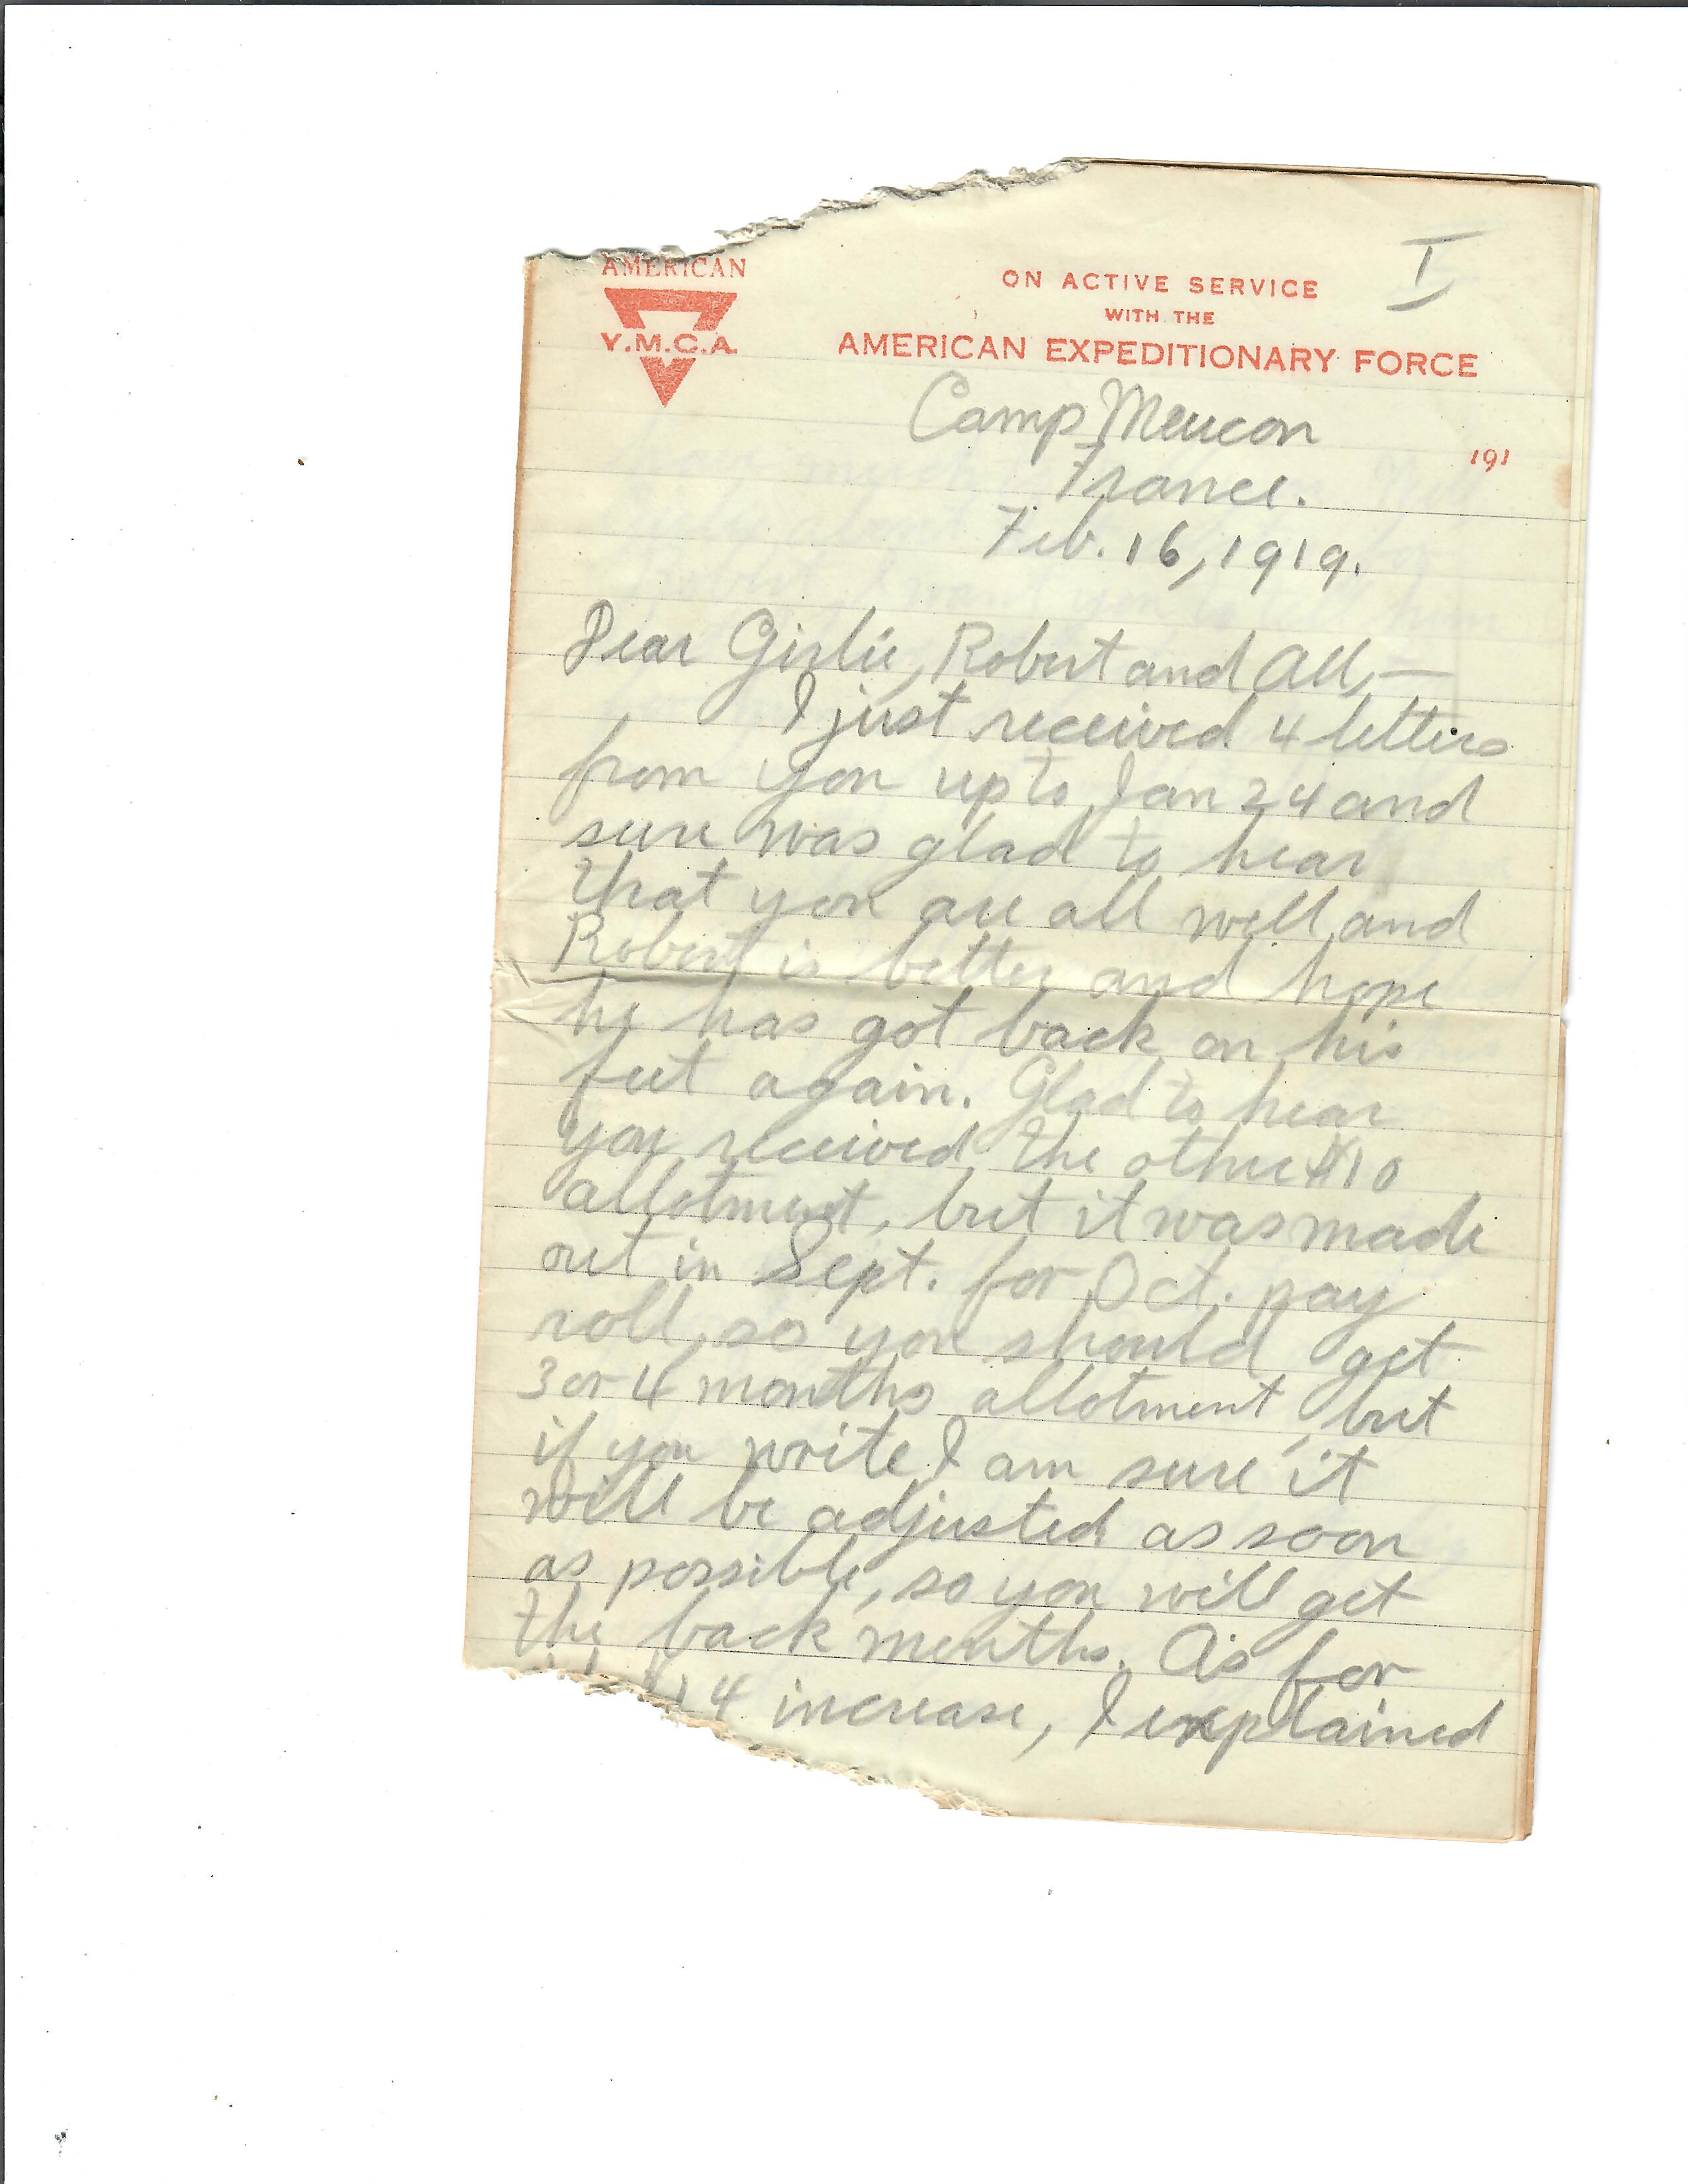 I
AMERICAN
Y.M.C.A.
ON ACTIVE SERVICE
WITH THE
AMERICAN EXPEDITIONARY FORCE
Camp Meucon
191
France.
Feb. 16, 1919.
Dear Girlie, Robert and All,—
I just received 4 letters
from you up to Jan 24 and
sure was glad to hear
that you are all well and
Robert is better and hope
he has got back on his
feet again. Glad to hear
you received the other $10
allotment, but it was made
out in Sept. for Oct. pay
roll, so you should get
3 or 4 months allotment, but
if you write I am sure it
will be adjusted as soon
as possible, so you will get
the back months. As for
4 increase, I explained